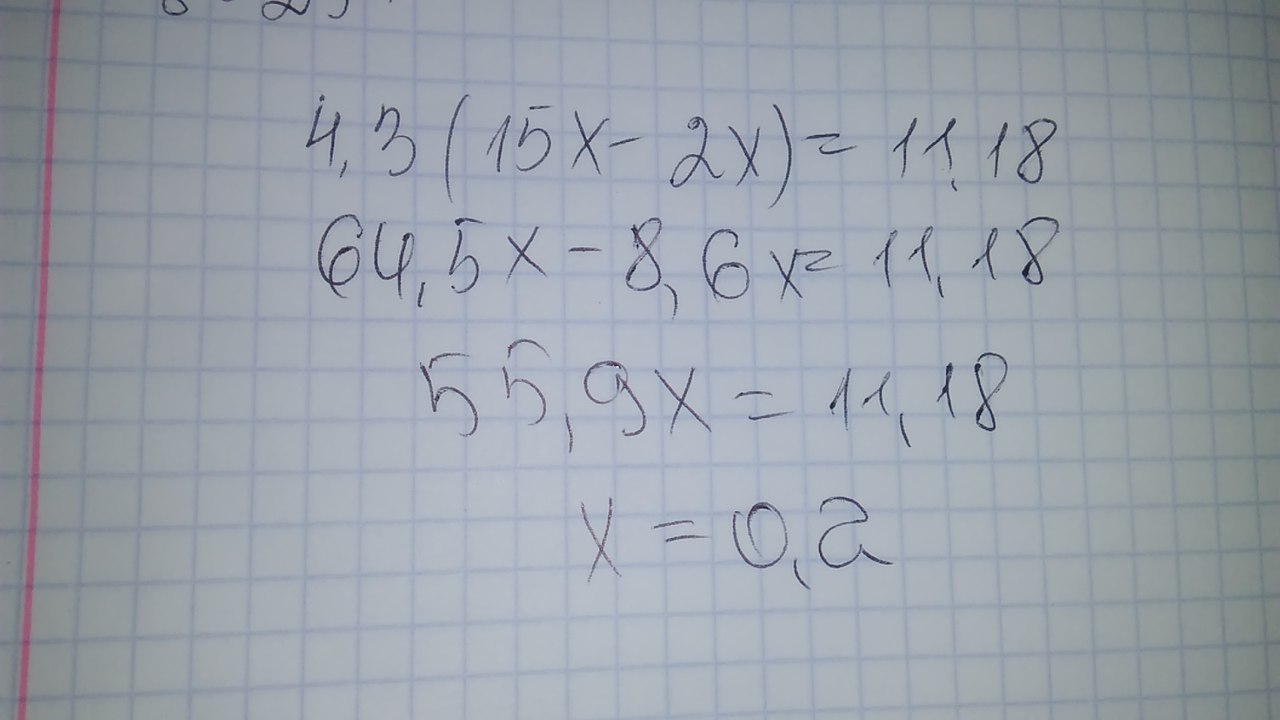 4,3(15x-2x)=11,18
64,5x-8,6x=11,18
55,9x=11,18
x=0,2